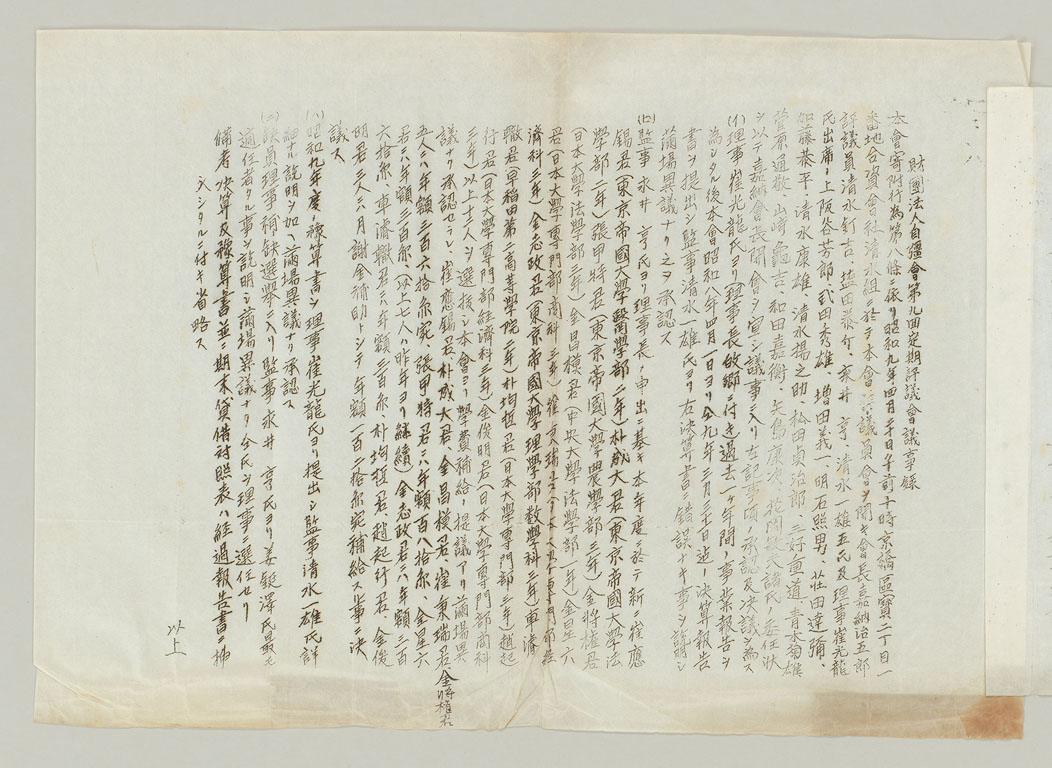 財團法人自彊會第九回定期評議會議事録
本會寄附行為第八條ニ依リ昭和九年四月二十日午前十時京橋區寶二丁目一
番地合資會社清水組ニ於テ本會評議員會ヲ開キ會長嘉納治五郎
評議員清水釘吉、塩田泰介、永井 亨、清水一雄五氏及理事崔光龍
氏出席シ上阪谷芳郎、武田秀雄、増田義一、明石照男、荘田達彌、
加藤恭平、清水康雄、清水揚之助、松田貞治郎、三好重道、青木菊雄
菅原通敬、山崎龜吉、和田嘉衡、矢島
ヲ以テ嘉納會長開會ヲ宣シ議事ニ入リ左記事項ノ承認及決議ヲ為ス
(イ)理事崔光龍氏ヨリ(理事長故郷ニ付キ)過去一ケ年間ノ事業報告ヲ
為シタル後本會昭和八年四月一日ヨリ仝九年三月三十一日迄ノ決算報告
書ヲ提出シ監事清水一雄氏ヨリ右決算書ニ錯誤ナキ事ヲ説明シ
満場異議ナク之ヲ承認ス
(ロ)監事永井 亨氏ヨリ理事長ノ申出ニ基キ本年度ニ於テ新ニ崔應
錫君(東京帝國大學醫學部二年)朴成大君(東京帝國大學法
學部二年)張甲特君(東京帝國大學農學部三年)金將植君
(日本大學法學部三年)金昌模君(中央大學法學部一年)金星六
君(日本大學專門部商科三年)崔東瑞
濟科三年)金志政君(東京帝國大學理學部数學科三年)車濬
轍君(早稲田第二高等學院二年)朴均恆君(日本大學專門部二年)趙起
行君(日本大學專門部経濟科三年)金俊明君(日本大學專門部商科
三年)以上十二人ヲ選抜シ本會ヨリ學費補給ノ提議アリ満場異
議ナク承認セラレ、崔應錫君、朴成大君、金昌模君、崔東瑞君、金將植君
五人ニハ年額三百六拾糸宛、張甲特君ニハ年額百八拾糸、金星六
君ニハ年額三百糸、(以上七人ハ昨年ヨリ継續)金志政君ニハ年額三百
六拾糸、車濬轍君ニハ年額三百糸、朴均恆君、趙起行君、金俊
明君三人ニハ月謝金補助トシテ年額一百二拾糸宛補給スル事ニ決
議ス
(ハ)昭和九年度ノ豫算書ヲ理事崔光龍氏ヨリ提出シ監事清水一雄氏詳
細ナル説明ヲ加ヘ満場異議ナク承認ス
(ニ)役員理事補缺選擧ニ入リ監事永井 亨氏ヨリ姜鋌澤氏最モ
適任者タル事ヲ説明シ満場異議ナク仝氏ヲ理事ニ選任セリ
備考 決算及豫算書並ニ期末貸借対照表ハ経過報告書ニ掲
シタルニ付キ省略ス
以上